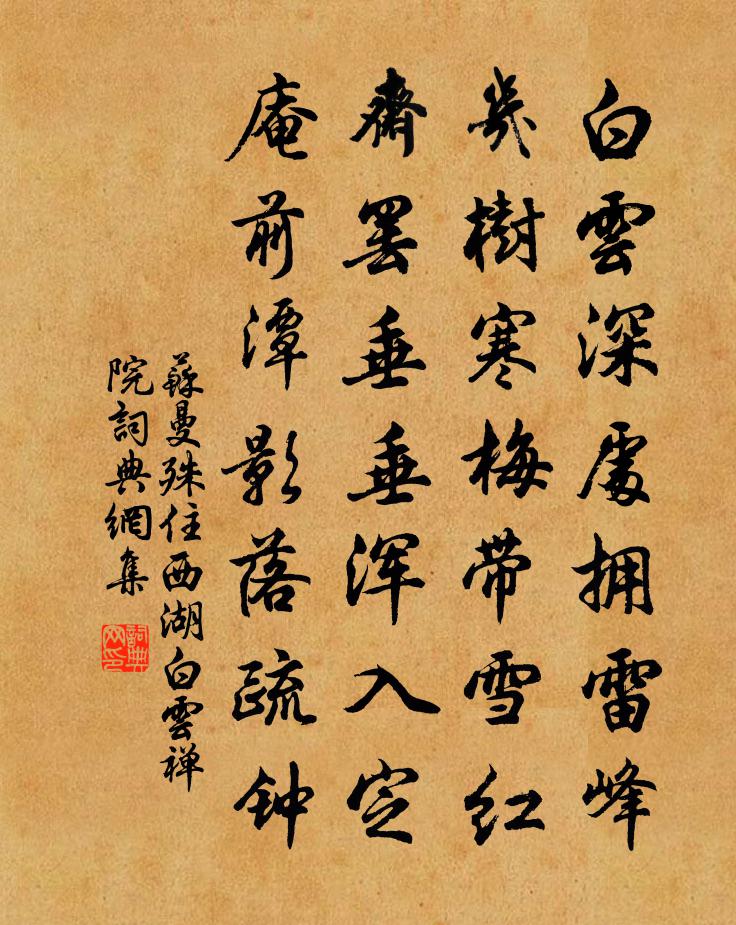 白雲深處拥雷峰
幾樹寒梅带雪红
齋罢垂垂浑入定
庵前潭影落疏钟
蘇曼殊住西湖白雲禅
院詞典網集
詞典网印